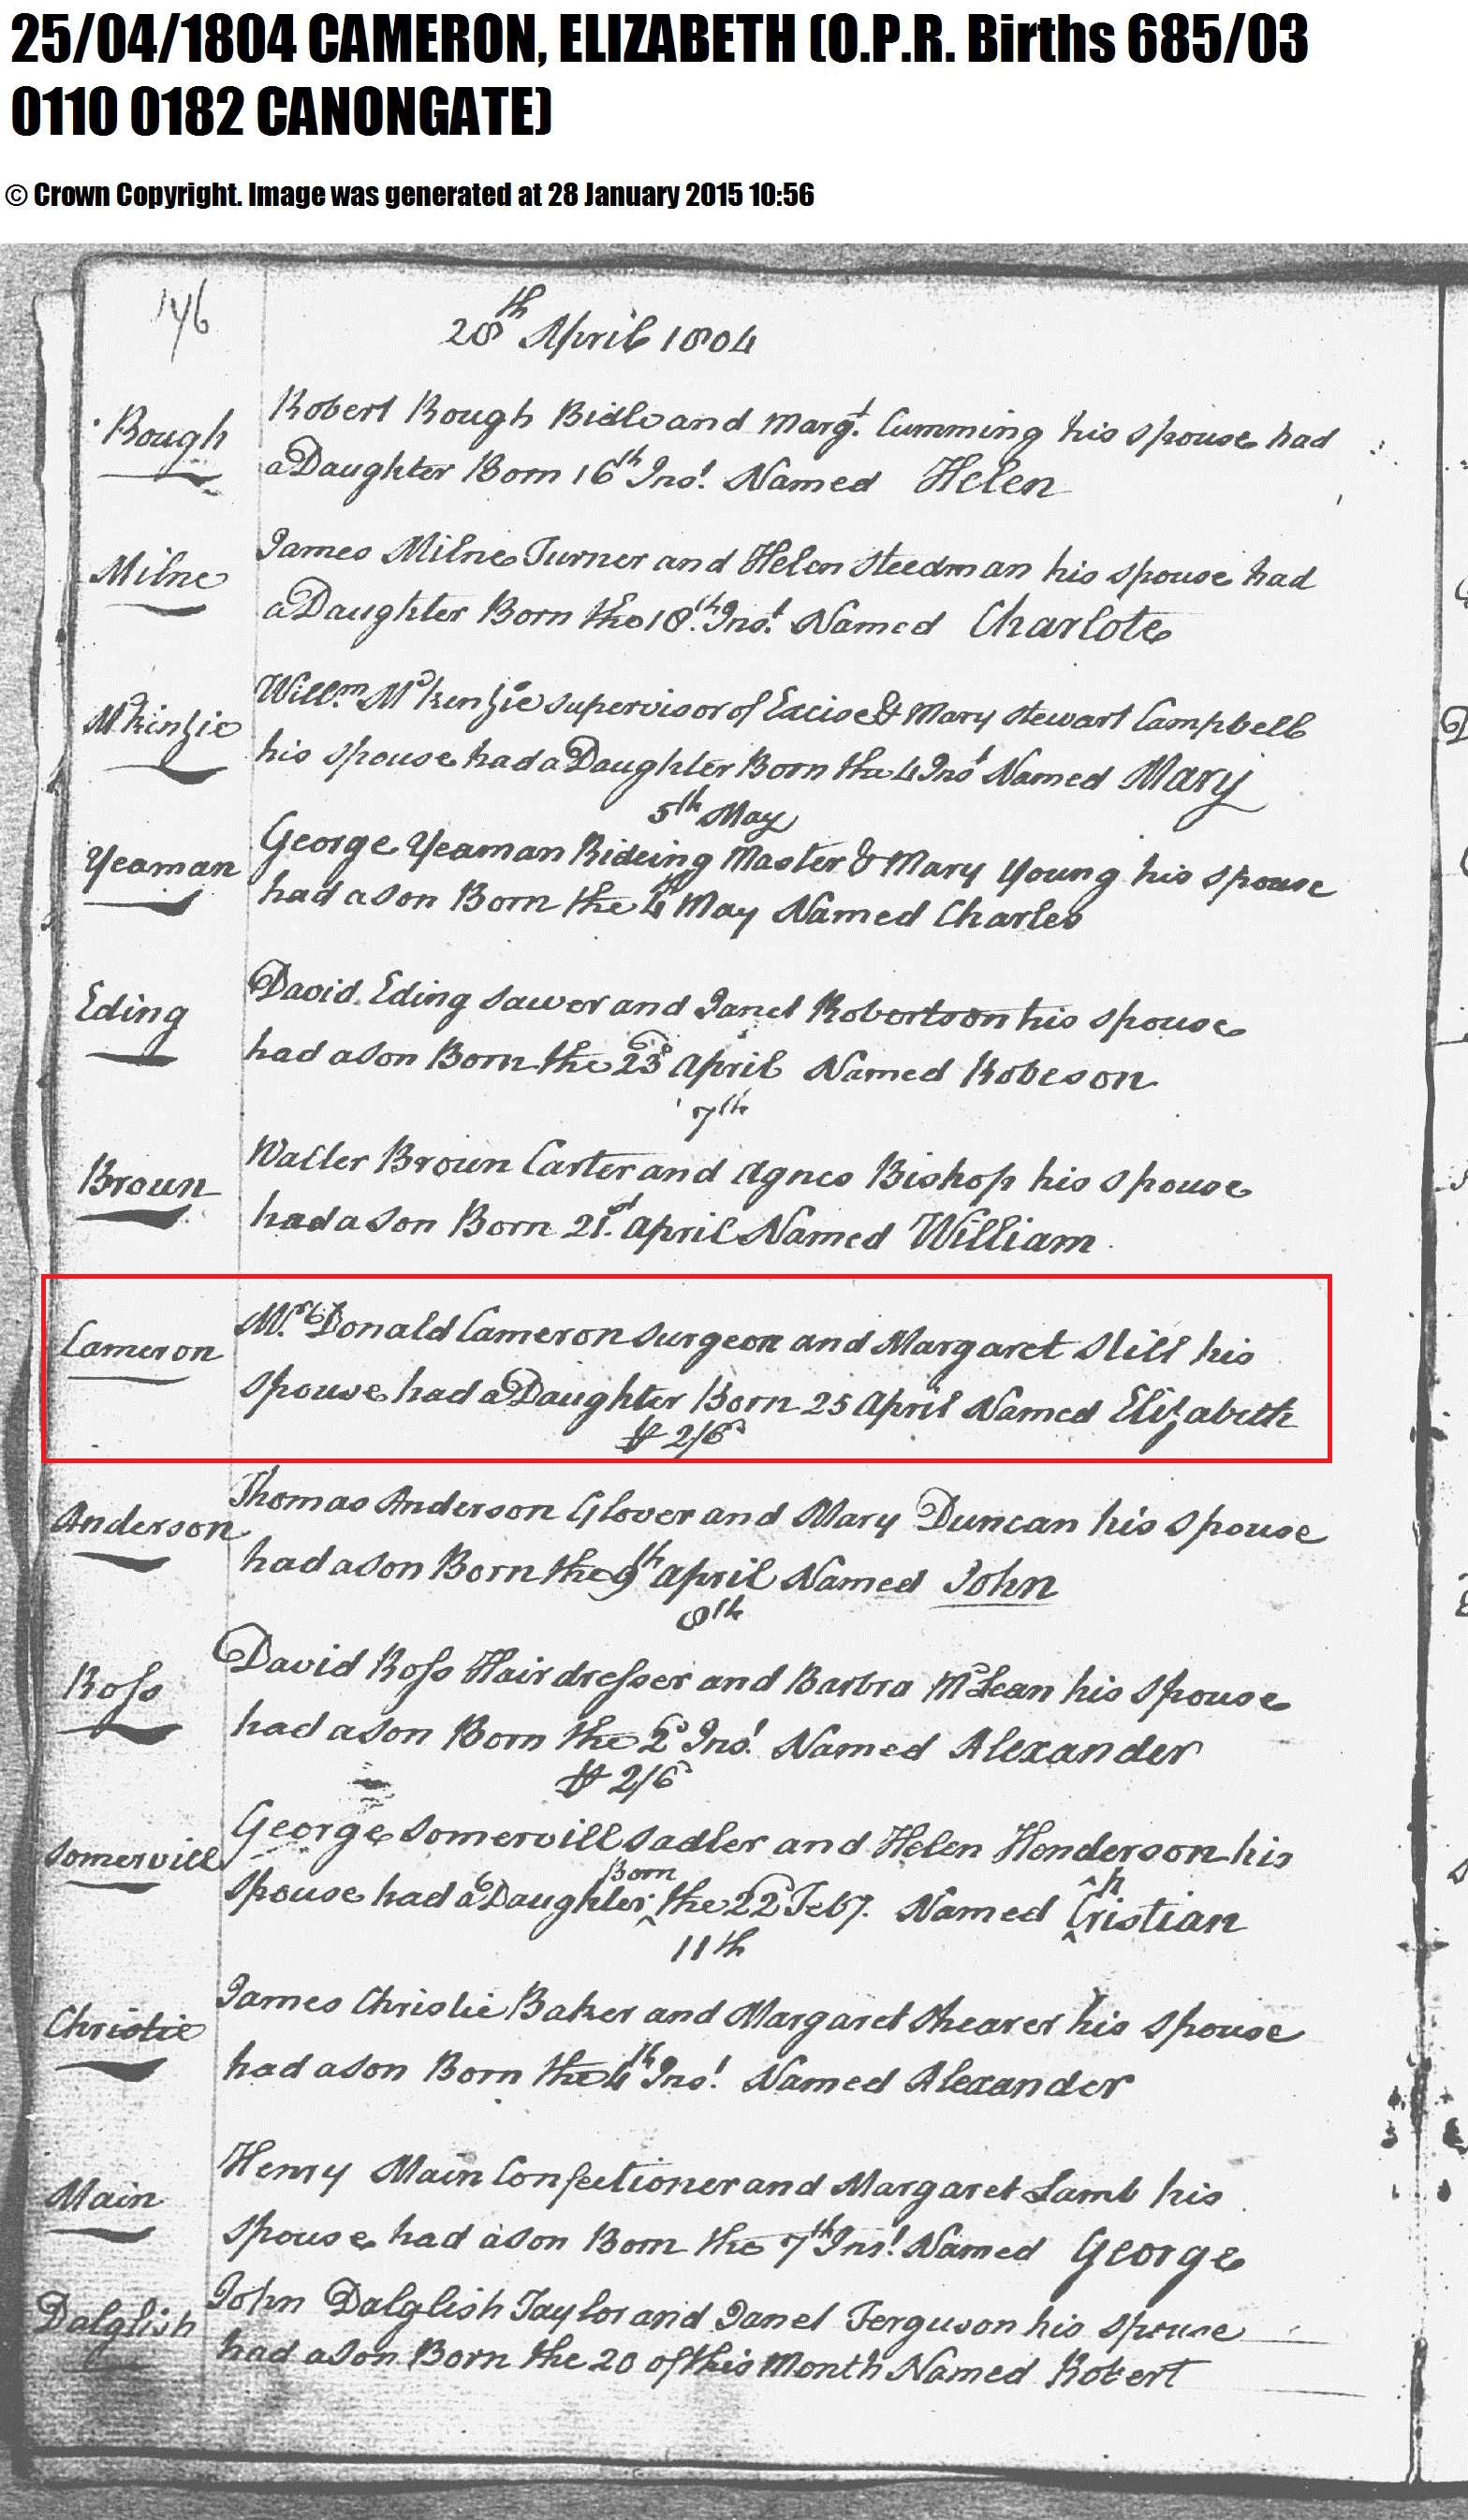 25/04/1804 CAMERON, ELIZABETH (O.P.R. Births 685/03
0110 0182 CANONGATE)
© Crown Copyright. Image was generated at 28 January 2015 10:56
146
28th April 1804
Rough
Robert Rough and Margt. Cumming his spouse had
a Daughter Born 16th Inst. Named Helen
Milne
James Milne Turner and Helen Steedman his spouse had
a Daughter Born the 18th. Inst. Named Charlote
McKinzie
Willm. McKenzie Supervisor of Excise & Mary Stewart Campbell
his spouse had a Daughter Born the 4 Inst Named Mary
5th May
Yeaman
George Yeaman Rideing Master & Mary Young his spouse
had a Son Born the 4th May Named Charles
Eding
David Eding Sawer and Janet Robertson his spouse
had a Son Born the 23d April Named Robeson
7th
Broun
Walter Broun Carter and Agnes Bishop his spouse
had a Son Born 21st. April Named William
Cameron
Mr. Donald Cameron Surgeon and Margaret Still his
spouse had a Daughter Born 25 April Named Elizabeth
2/6
Anderson
Thomas Anderson Glover and Mary Duncan his spouse
had a Son Born the 9th April Named John
8th
Ross
David Ross Hairdresser and Barbra McLean his spouse
had a Son Born the 2d Inst. Named Alexander
2/6
Somervill
George Somervill Sadler and Helen Henderson his
spouse had a Daughter Born the 22d Feby. Named Christian
11th
Christie
James Christie Baker and Margaret Shearer his spouse
had a Son Born the 4th Inst. Named Alexander
Main
Henry Main Confectioner and Margaret Lamb his
spouse had a Son Born the 7th Inst. Named George
Dalglish
John Dalglish Taylor and Janet Ferguson his spouse
had a Son Born the 20 of this Month Named Robert